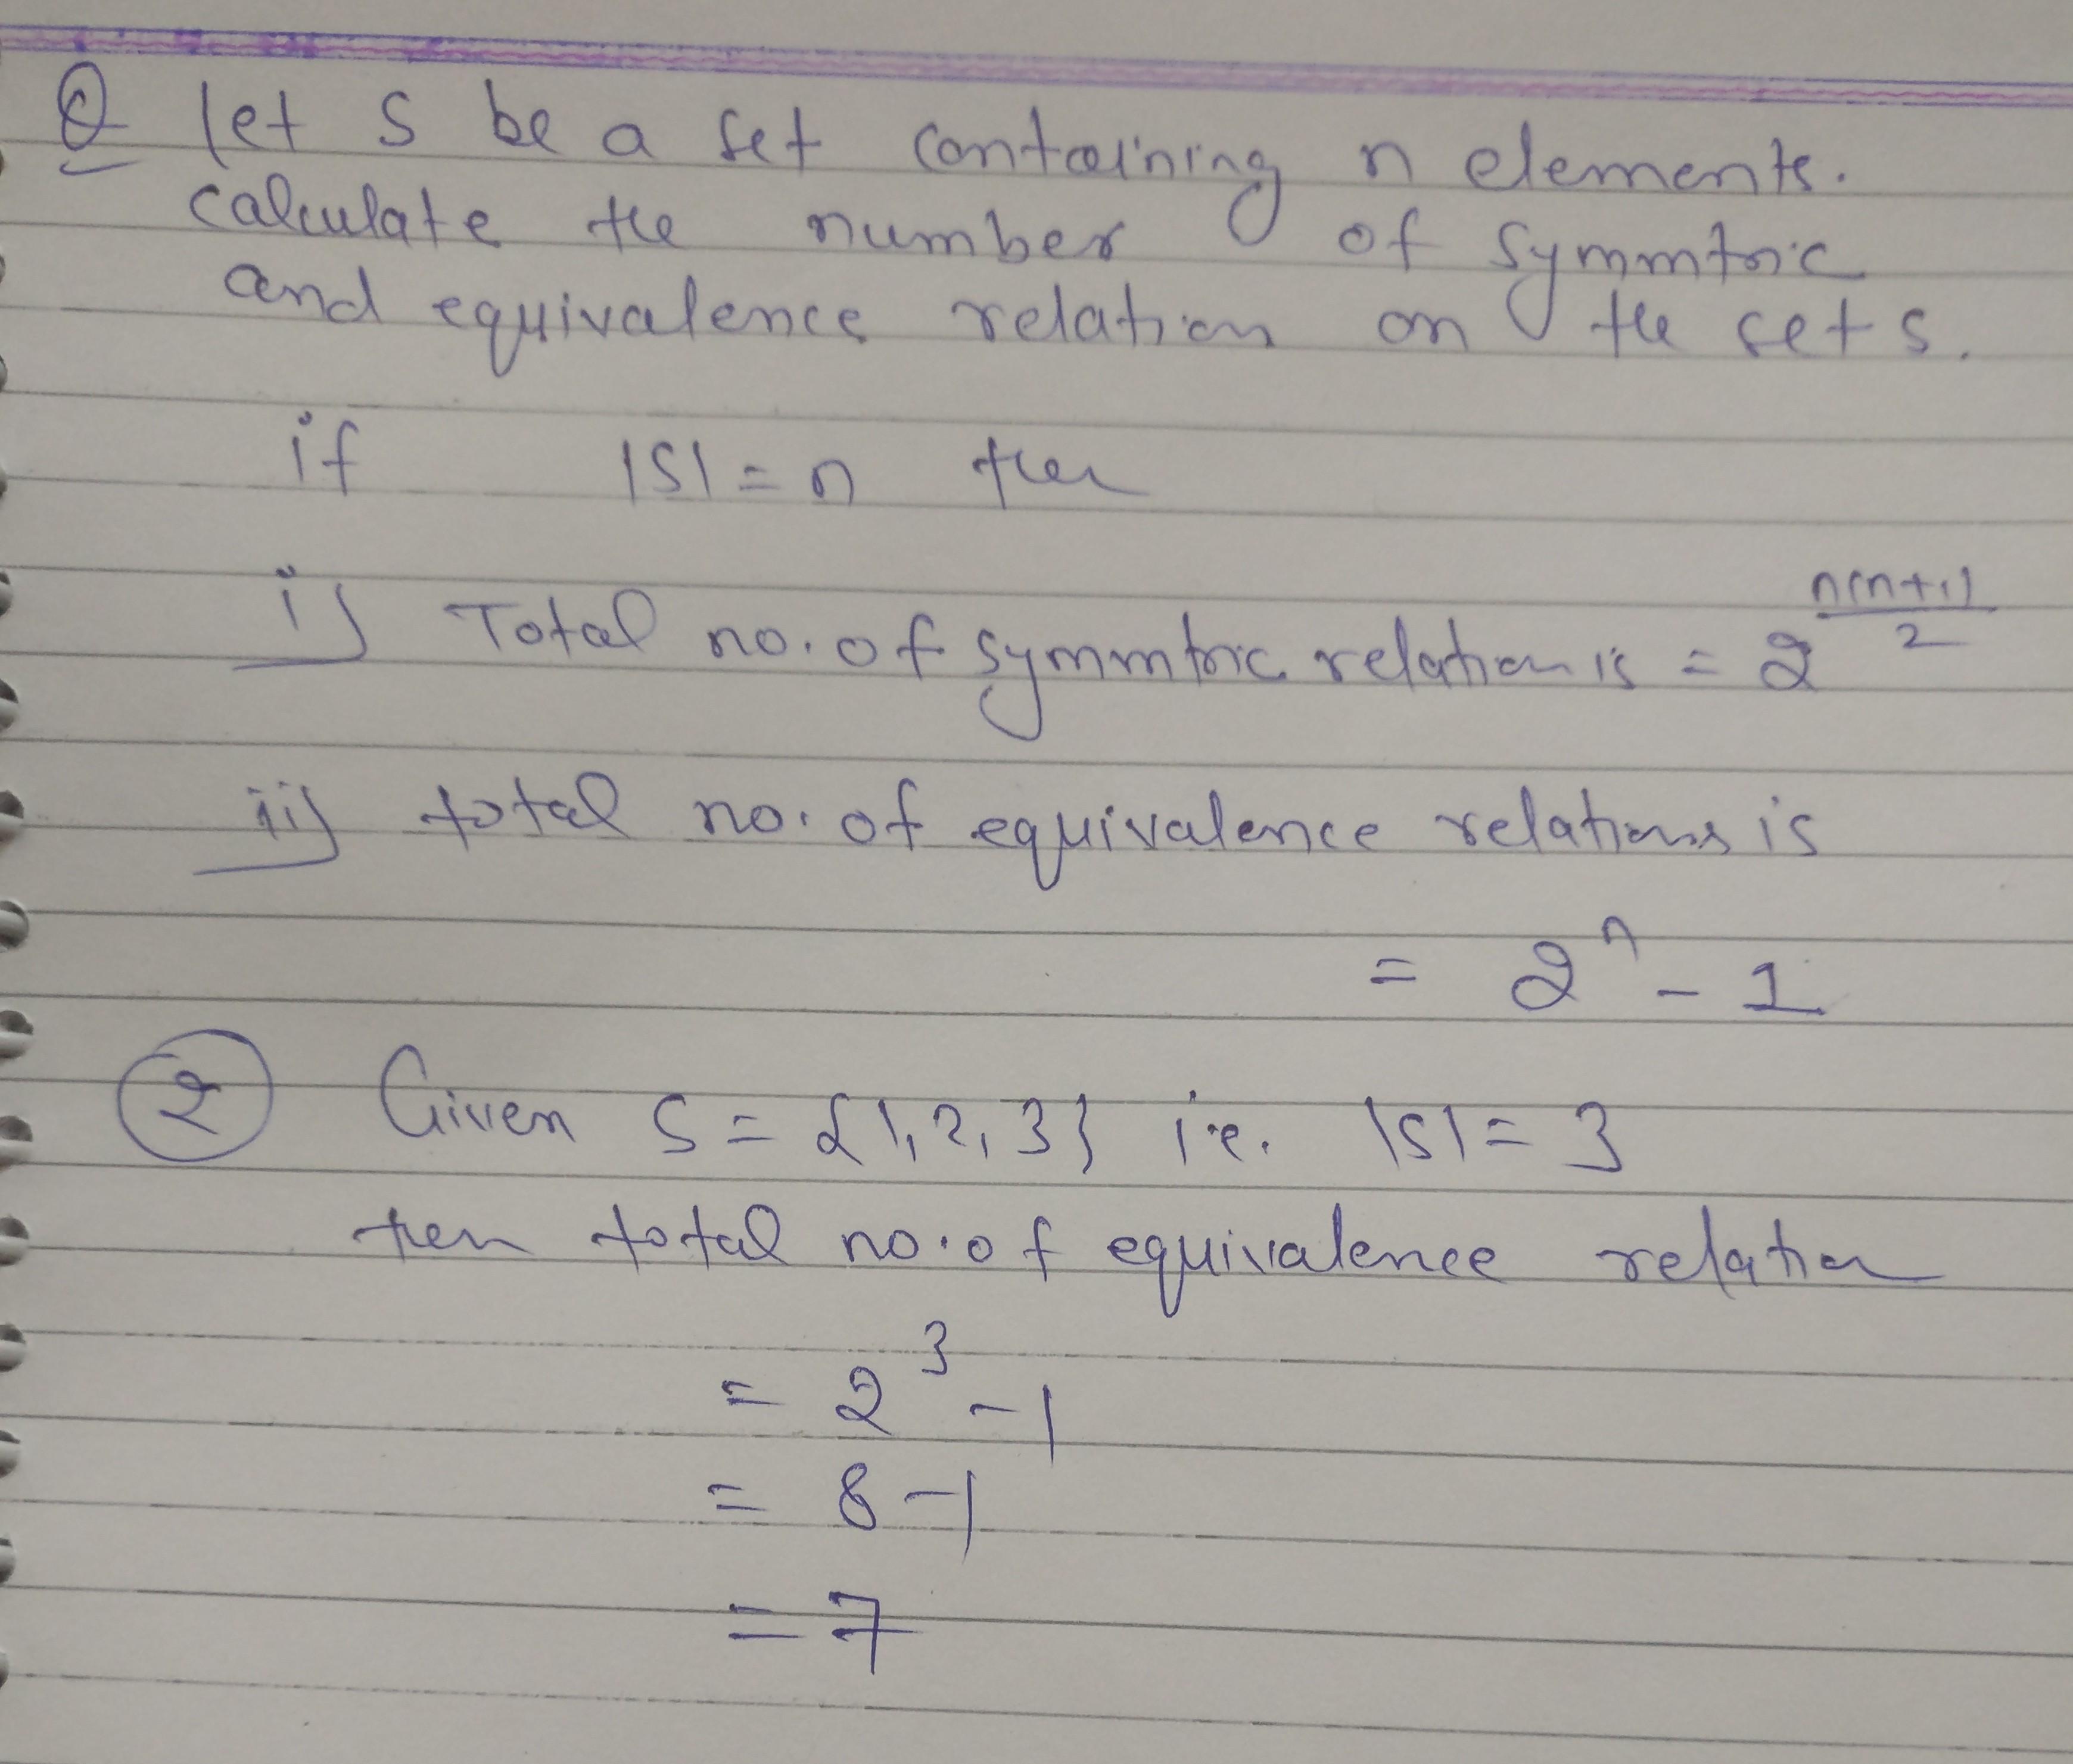 Q let S be a set containing n elements.
calculate the number of symmtric
and equivalence relation on the set S.
if |S| = n then
i) Total no. of symmtric relation is = 2^(n(n+1)/2)
ii) total no. of equivalence relations is
= 2^n - 1
2 Given S = {1, 2, 3} i.e. |S| = 3
then total no. of equivalence relation
= 2^3 - 1
= 8 - 1
= 7